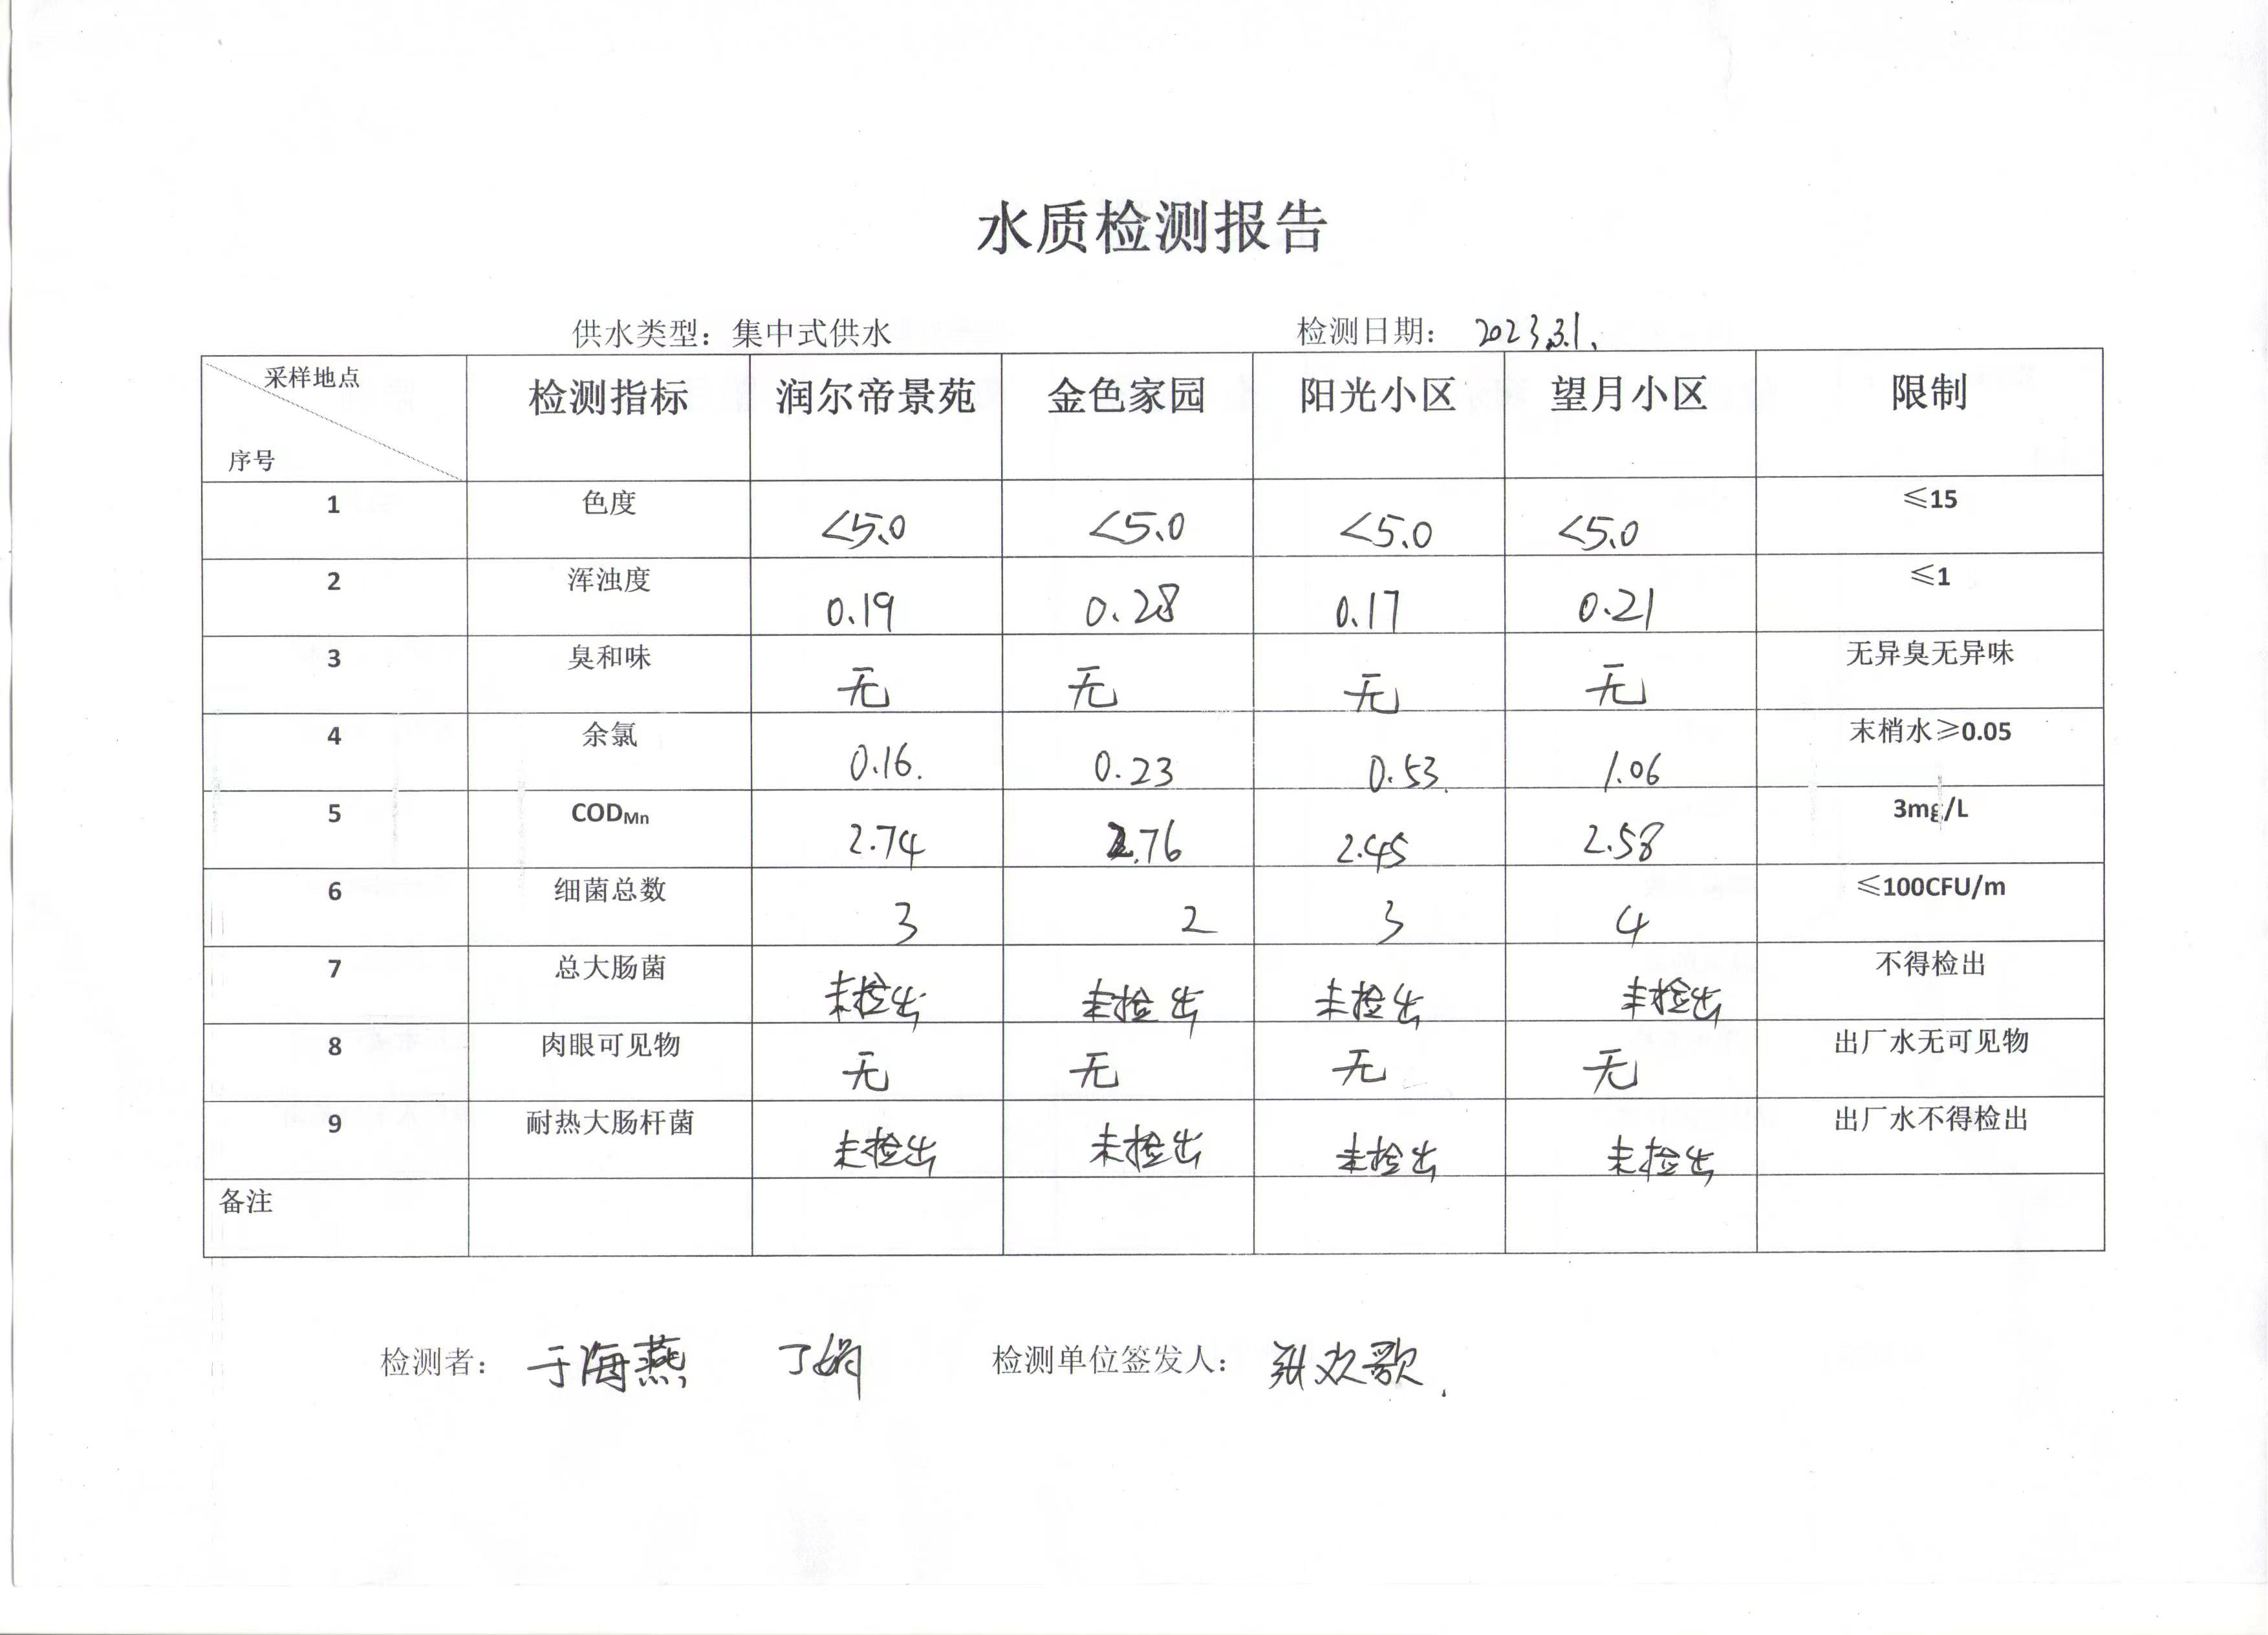 水质检测报告
供水类型：集中式供水 检测日期： 2023.3.1.
采样地点 序号 检测指标 润尔帝景苑 金色家园 阳光小区 望月小区 限制
1 色度 <5.0 <5.0 <5.0 <5.0 ≤15
2 浑浊度 0.19 0.28 0.17 0.21 ≤1
3 臭和味 无 无 无 无 无异臭无异味
4 余氯 0.16. 0.23 0.53. 1.06 末梢水≥0.05
5 CODMn 2.74 2.76 2.45 2.58 3mg/L
6 细菌总数 3 2 3 4 ≤100CFU/m
7 总大肠菌 未检出 未检出 未检出 未检出 不得检出
8 肉眼可见物 无 无 无 无 出厂水无可见物
9 耐热大肠杆菌 未检出 未检出 未检出 未检出 出厂水不得检出
备注
检测者： 于海燕 检测单位签发人： 张欢歌.